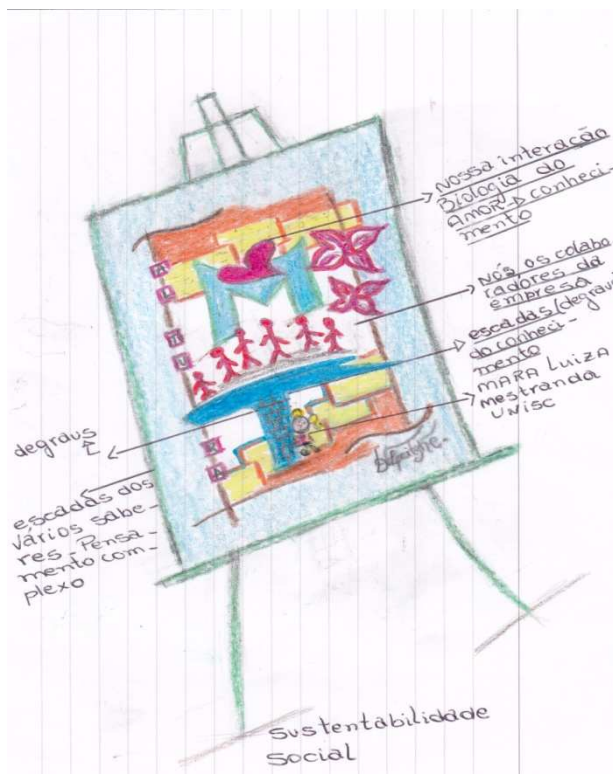 NOSSA interação
Biologia do
AMOR → conheci-
mento
NÓS, os colabo
radores da
empresa
escadas/degraus
do conheci-
mento
MARA LUIZA
Mestranda
UNISC
degraus
escadas dos
vários sabe-
res - Pensa-
mento com-
plexo
M
Sustentabilidade
Social